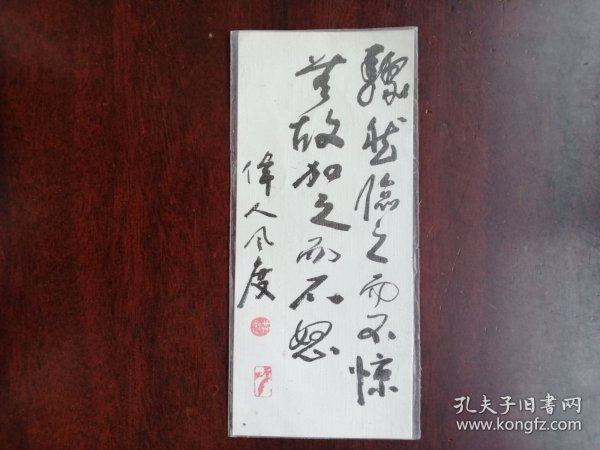 骤然临之而不惊
无故加之而不怒
偉人风度
孔夫子旧書网
www.kongfz.com